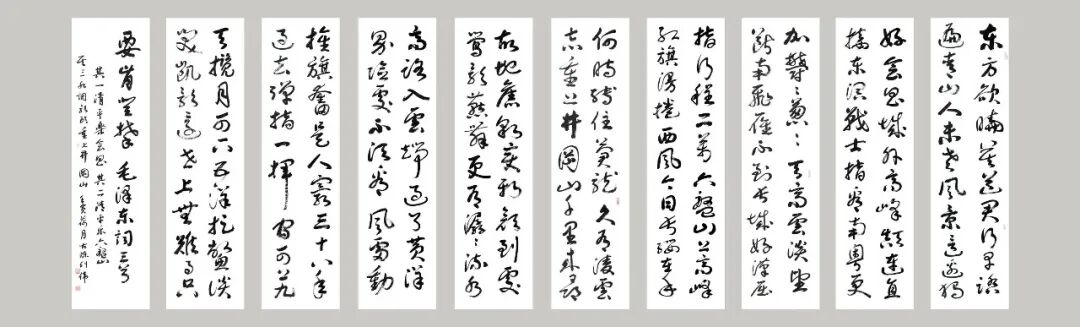 东方欲晓莫道君行早踏
遍青山人未老风景这边独
好会昌城外高峰颠连直
接东溟战士指看南粤更
加欝〻葱〻天高雲淡望
断南飞雁不到长城好汉屈
指行程二萬六盤山上高峰
红旗漫捲西风今日长缨在手
何时缚住苍龙久有凌雲
志重上井岡山千里来尋
故地旧貌变新颜到處
莺歌燕舞更有潺〻流水
高路入雲端过了黄洋
界险處不须看风雷動
旌旗奮是人寰三十八年
过去弹指一挥间可九
天揽月可下五洋捉鳖谈
笑凯歌还世上無难事只
要肯登攀 毛泽东词三首
其一清平乐会昌 其二清平乐六盤山
其三水调歌头重上井岡山 壬寅荷月